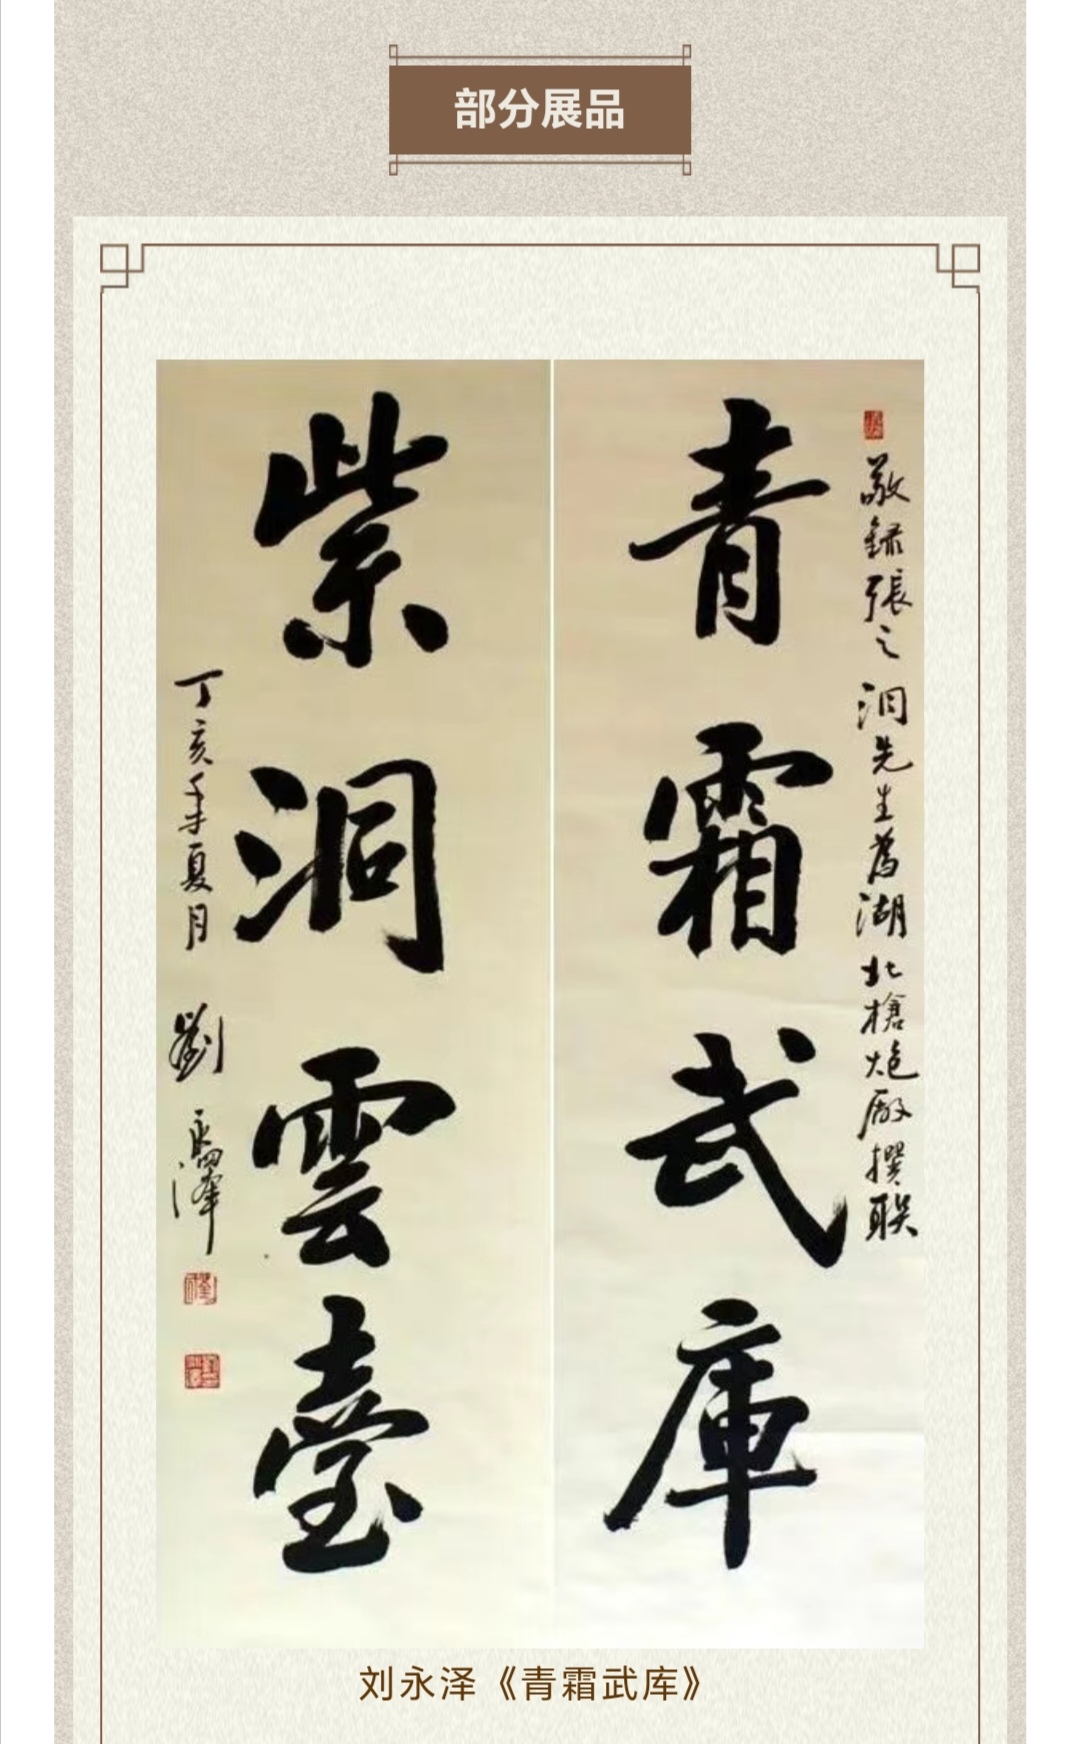 部分展品
敬録張之洞先生為湖北槍炮廠撰联
青霜武庫
紫洞雲臺
丁亥年夏月 劉永澤
刘永泽《青霜武库》